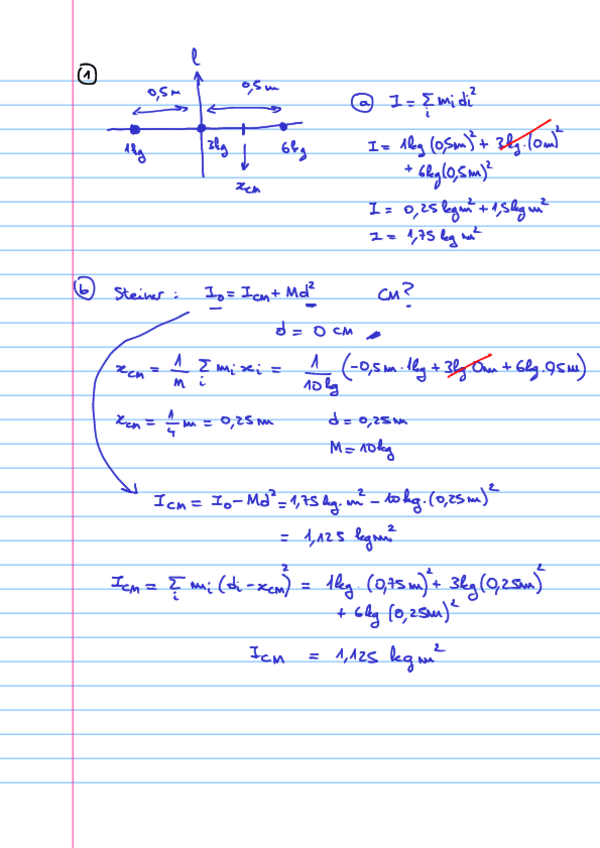 1
l
0,5m 0,5m
1kg 3kg 6kg
x_CM
a) I = Σ_i m_i d_i²
I = 1kg (0,5m)² + 3kg·(0m)²
+ 6kg(0,5m)²
I = 0,25 kgm² + 1,5 kgm²
I = 1,75 kg m²
b) Steiner: I_0 = I_CM + Md² CM?
d = 0 CM
x_CM = 1/m Σ_i m_i x_i = 1/10kg (-0,5m·1kg + 3kg·0m + 6kg·0,5m)
x_CM = 1/4 m = 0,25m d = 0,25m
M = 10kg
I_CM = I_0 - Md² = 1,75 kg·m² - 10kg·(0,25m)²
= 1,125 kgm²
I_CM = Σ_i m_i (d_i - x_CM)² = 1kg·(0,75m)² + 3kg(0,25m)²
+ 6kg (0,25m)²
I_CM = 1,125 kgm²